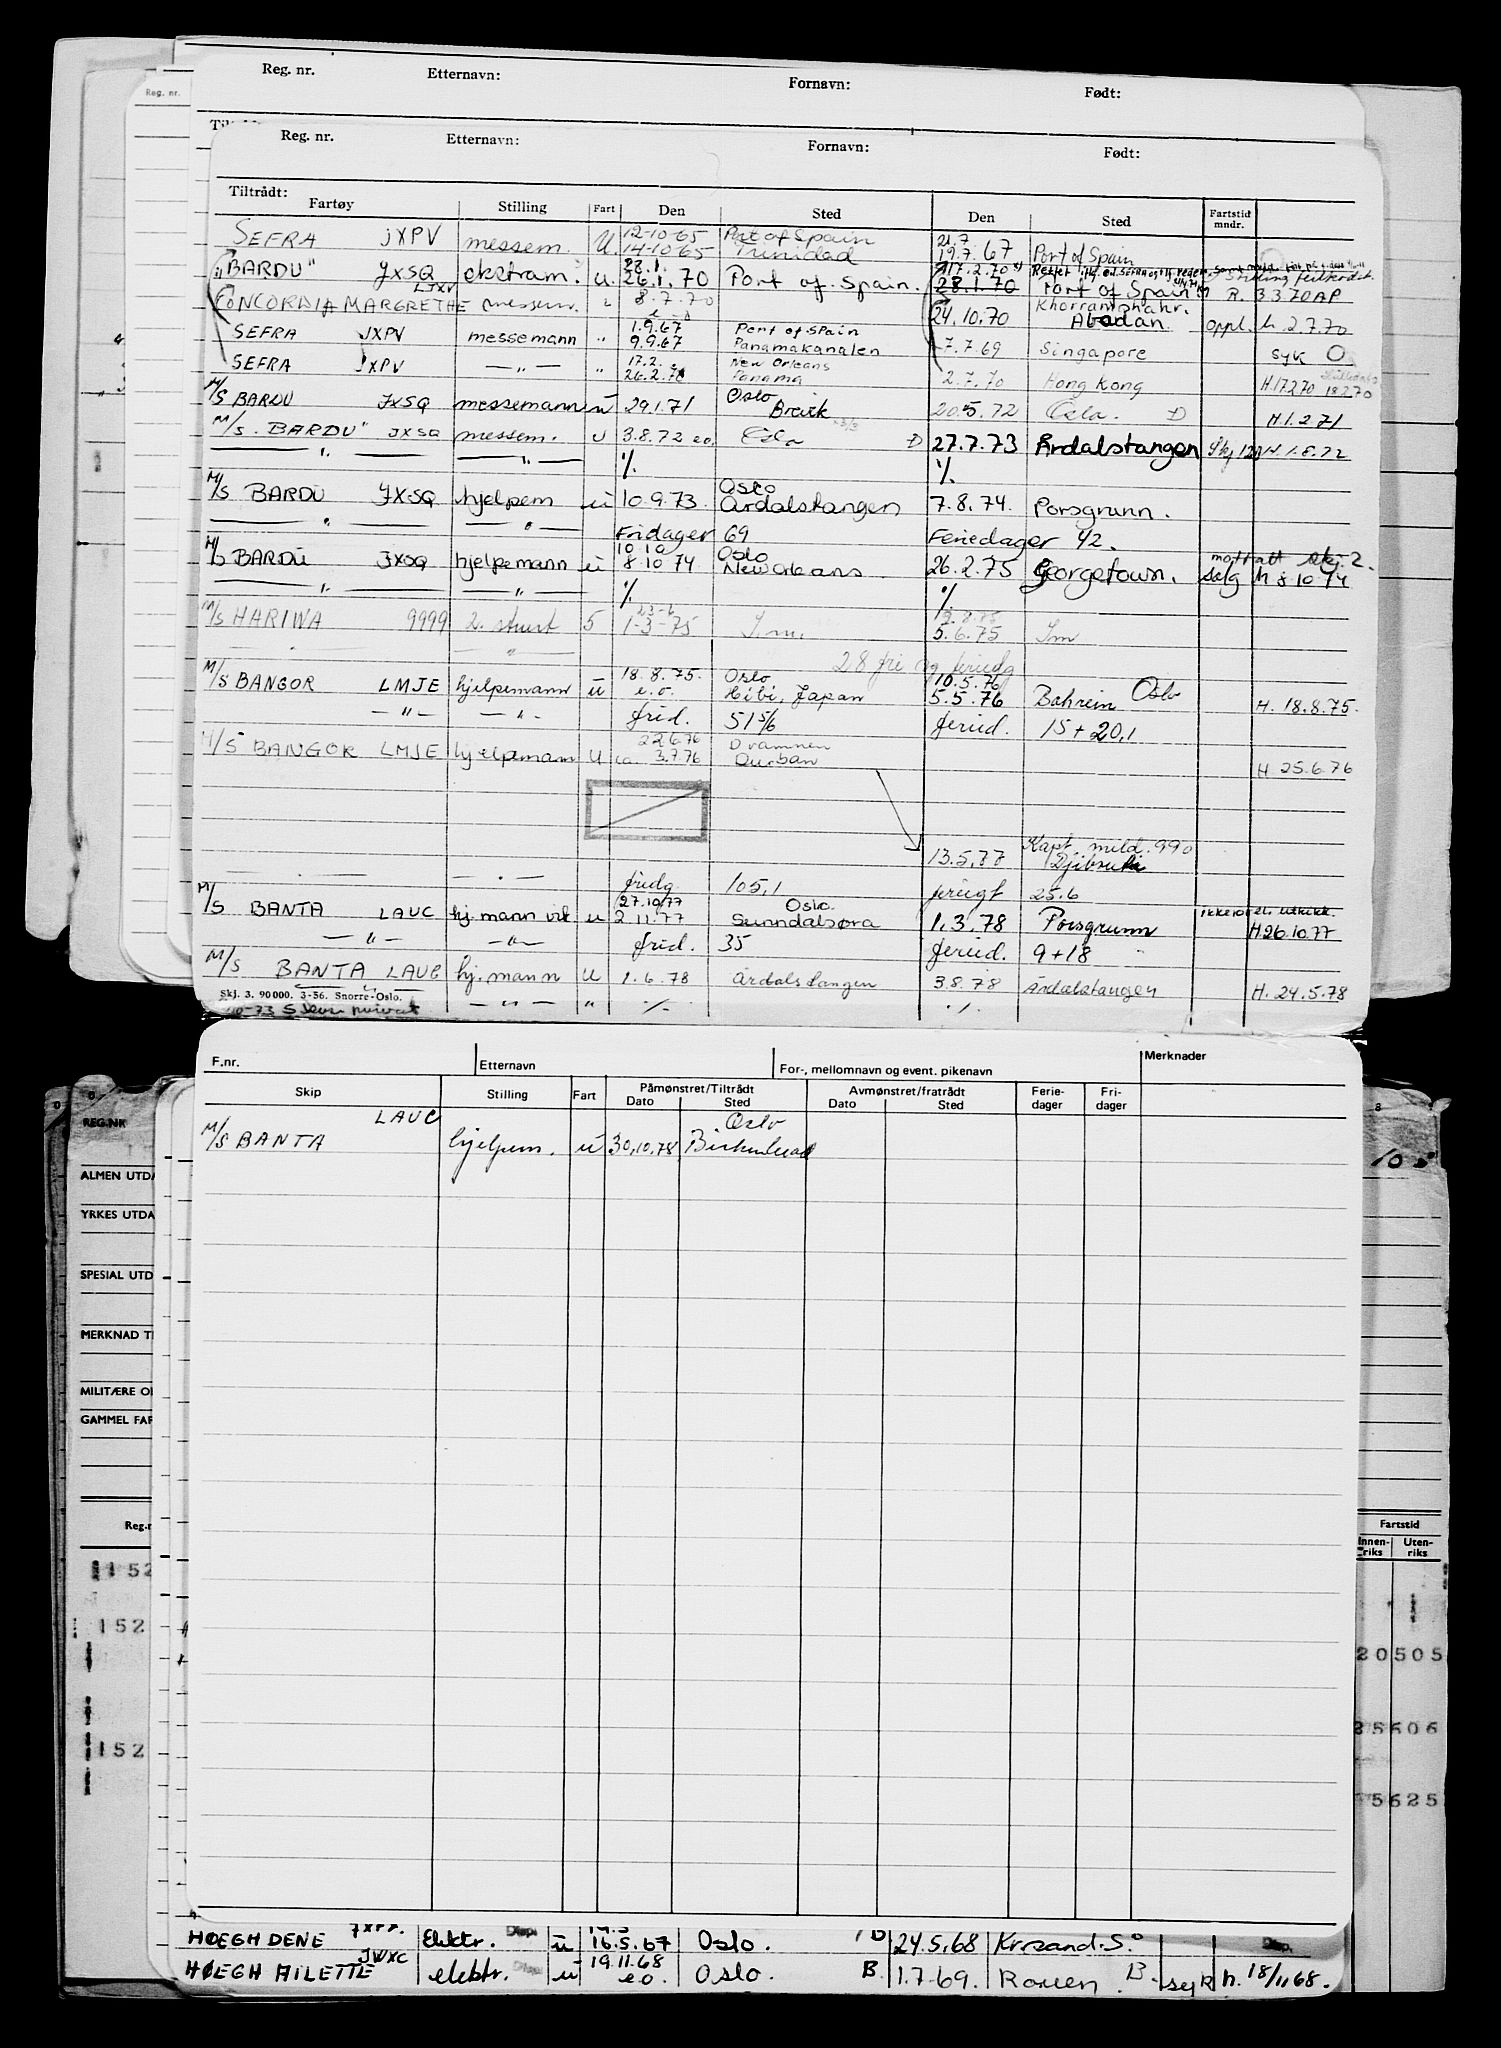 Reg. nr. Etternavn: Fornavn: Født:
Reg. nr.
Reg. nr. Etternavn: Fornavn: Født:
Tiltrådt:
Fartøy Stilling Fart Den Sted Den Sted Fartstid mndr.
SEFRA JXPV messem. U 12-10-65 Port of Spain 21.7
14-10-65 Trinidad 19.7.67 Port of Spain
"BARDU" JXSQ ekstram. u. 28.1. 26.1.70 Port of Spain. 17.2.70
28.1.70 Port of Spain R. 3370AP
CONCORDIA MARGRETHE LJXV messem. " 8.7.70 24.10.70 Khorramshahr. Abadan oppl. h 2.7.70
SEFRA JXPV messemann " 1.9.67 Port of Spain
9.9.67 Panamakanalen 7.7.69 Singapore syk
SEFRA JXPV — " — " 17.2. New Orleans
26.2.70 Panama 2.7.70 Hong Kong H.17270 18270
M/S BARDU JXSQ messemann u 29.1.71 Oslo Brevik 20.5.72 Oslo. D H.1.2.71
M/S. BARDU" JXSQ messem. u 3.8.72 eo Oslo D 27.7.73 Årdalstangen H. 1.8.72
— " — — " — %. %.
M/S BARDU JXSQ hjelpem u 10.9.73. Oslo Årdalstangen 7.8.74. Porsgrunn.
— " — — " — Fridager 69 Feriedager 42.
M/S BARDU JXSQ hjelpemann u 10 10 8 10 74 Oslo New Orleans. 26.2.75 Georgetown. mottatt skj. 2. h 8 10 74
— " — — " — %. %.
M/S HARIWA 9999 2. stuert 5 23-6 1-3-75 I.m. 5.6.75 Im
— " — 28 fri og feriedg
M/S BANGOR LMJE hjelpemann u 18.8.75. e.o. Oslo Hibi, Japan 10.5.76 5.5.76 Bahrein Oslo H. 18.8.75.
— " — — " — frid. 51 5/6 feried. 15 + 20,1
M/S BANGOR LMJE hjelpemann u 22.6.76 Drammen
ca. 3.7.76 Durban H 25.6.76
13.5.77 Kapt. meld. 990 Djibouti
— " — fridg. 105,1 25.6
M/S BANTA LAUC hj.mann vik u 27.10.77 2.11.77 Oslo. Sunndalsøra 1.3.78 Porsgrunn H26.10.77
— " — — " — frid. 35 feried. 9+18
M/S BANTA LAUC hj. mann u 1.6.78 Årdalstangen 3.8.78 Årdalstangen H. 24.5.78
Skj. 3. 90000. 3-56. Snorre-Oslo. — " — " %. %.
F.nr. Etternavn For-, mellomnavn og event. pikenavn Merknader
Skip Stilling Fart Påmønstret/Tiltrådt Dato Sted Avmønstret/fratrådt Dato Sted Ferie-dager Fri-dager
M/S BANTA LAUC hjelpem. u 30.10.78 Oslo Birkenhead
REG.NR
ALMEN UTDA
YRKES UTDA
SPESIAL UTD
MERKNAD T
MILITÆRE O
GAMMEL FAR
Reg.n
Fartstid
Innen-riks Uten-riks
152
152
20505
35606
152
5625
HØEGH DENE Elektr. u 16.5.67 Oslo. D 24.5.68 Kr.sand.S.
HØEGH AILETTE JWXC elektr. u 19.11.68 e.o. Oslo. B. 1.7.69. Rouen B. syk h. 18/11 68.